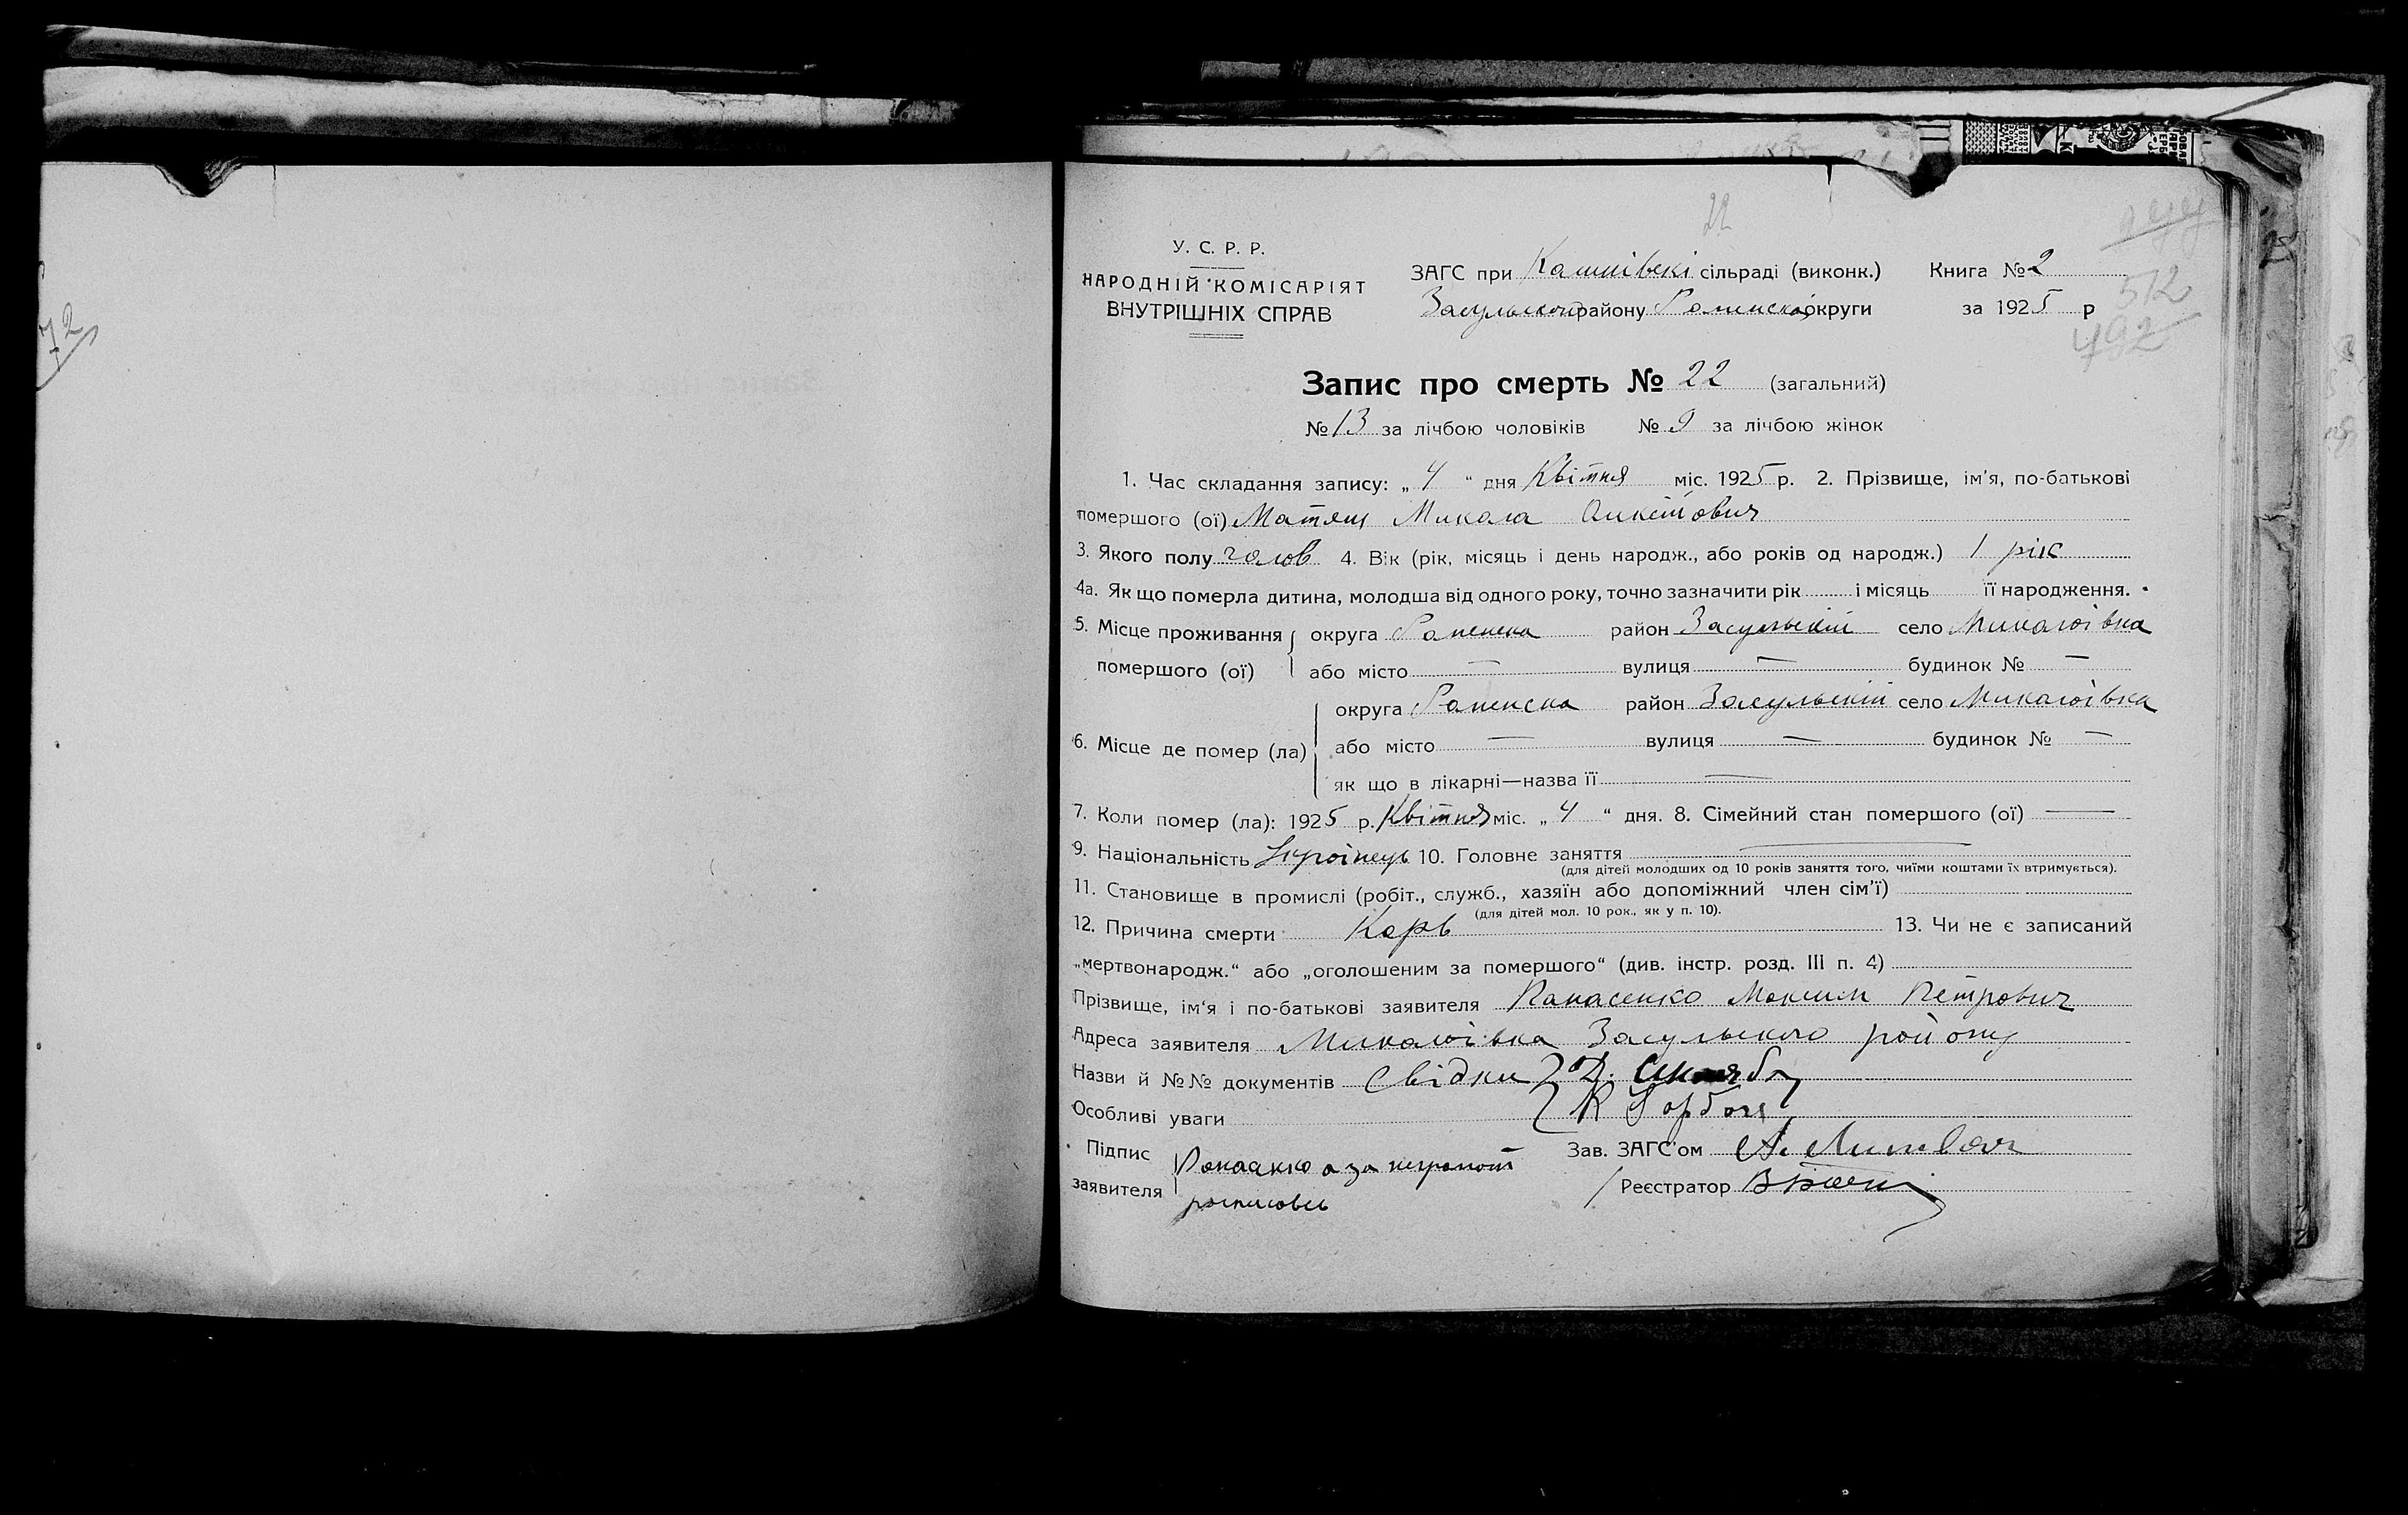 22
У. С. Р. Р.
НАРОДНІЙ КОМІСАРІЯТ
ВНУТРІШНІХ СПРАВ
ЗАГС при сільраді (виконк.) Книга № 2
району округи за 1925 р
72
512
492
Запис про смерть № 22 (загальний)
№ 13 за лічбою чоловіків № 9 за лічбою жінок
1. Час складання запису: „ 4 “ дня Квітня міс. 1925 р. 2. Прізвище, ім'я, по-батькові
помершого (ої) Матяш Микола
3. Якого полу чолов 4. Вік (рік, місяць і день народж., або років од народж.) 1 рік
4а. Як що померла дитина, молодша від одного року, точно зазначити рік і місяць її народження.
5. Місце проживання округа Роменска район Засульскій село Миколаївка
помершого (ої) або місто — вулиця — будинок № —
округа Роменска район Засульскій село Миколаївка
6. Місце де помер (ла) або місто — вулиця — будинок № —
як що в лікарні—назва її —
7. Коли помер (ла): 1925 р. Квітня міс. „ 4 “ дня. 8. Сімейний стан помершого (ої) —
9. Національність Українець 10. Головне заняття —
(для дітей молодших од 10 років заняття того, чиїми коштами їх втримується).
11. Становище в промислі (робіт., служб., хазяїн або допоміжний член сім'ї)
(для дітей мол. 10 рок., як у п. 10).
12. Причина смерти Корь 13. Чи не є записаний
„мертвонародж.“ або „оголошеним за помершого“ (див. інстр. розд. III п. 4)
Прізвище, ім'я і по-батькові заявителя Панасенко Максим Петрович
Адреса заявителя Миколаївка Засульского району
Назви й №№ документів Свідки
Особливі уваги
Підпис
заявителя
Зав. ЗАГС'ом
Реєстратор